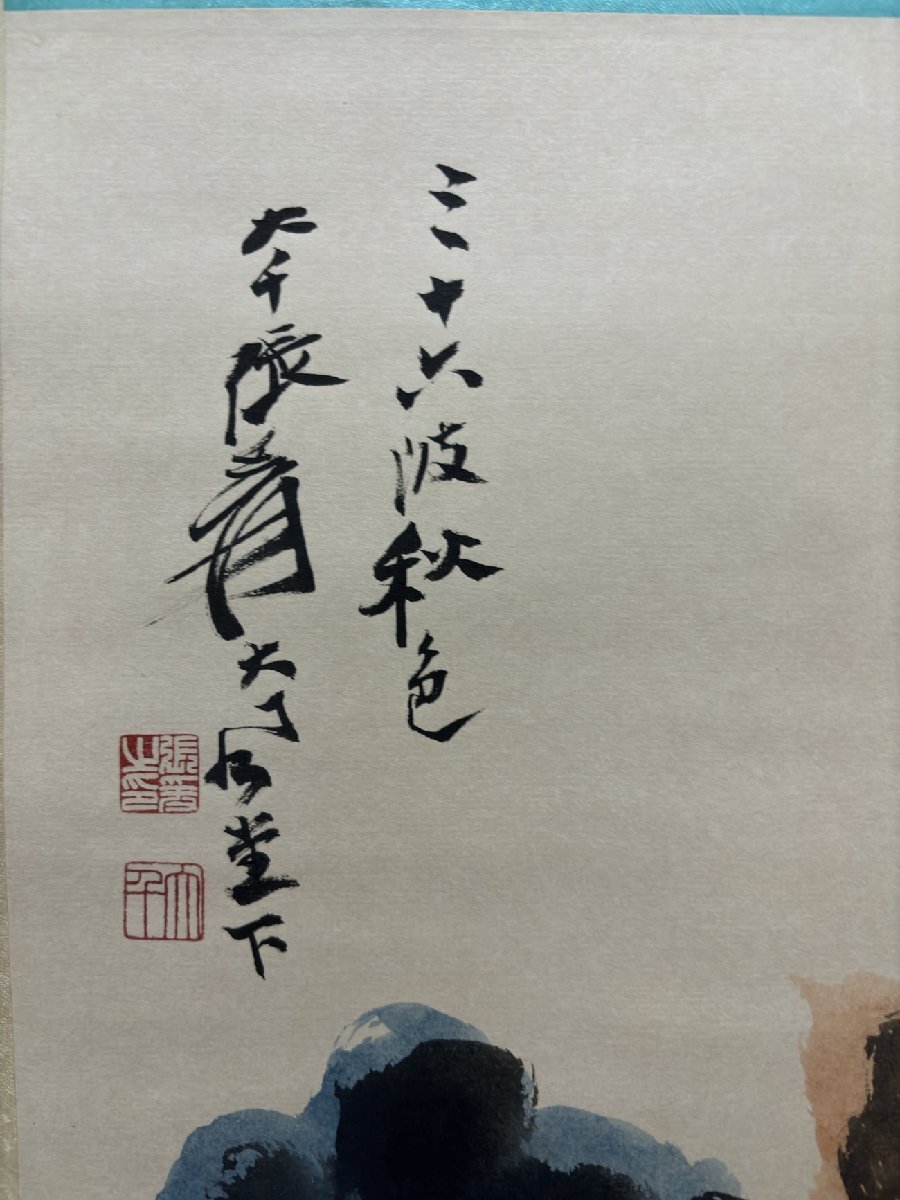 三十六陂秋色
大千張爰大風堂下
張爰之印
大千